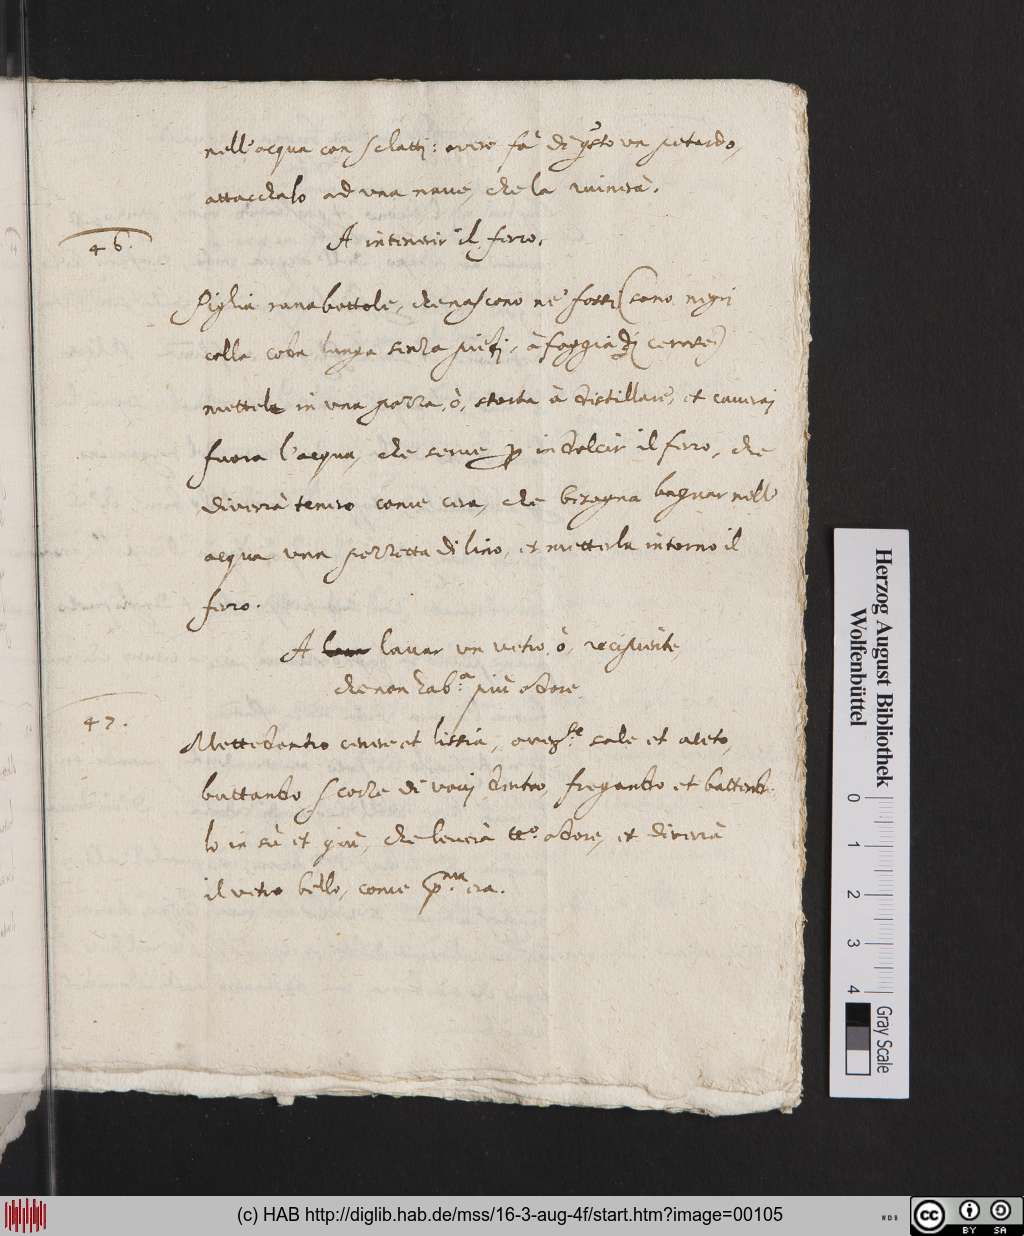 nell'acqua con sclatti: overo fà di q̃sto un petardo,
attacchalo ad una nave, che la ruinerà.
46.
A intenerir il ferro.
Piglia ranabottole, che nascono ne' fossi (sono negri
colla coda lunga senza piedi, à foggia di
mettele in una pozza, ò, storta à distillare, et caverai
fuora l'acqua, che serve p indolcir il ferro, che
diverrà tenero come cera, che bisogna bagnar nell'
acqua una pezzetta di lino, et metterla intorno il
ferro.
A lavar un vetro, ò, recipiente,
che non hab:ᵃ più odore.
47.
Mette dentro cenere et lissia, sale et aceto,
buttando scorze di vovi dentro, fregando et battendo-
lo in sù et giù, che leverà tt:º odore, et diverrà
il vetro bello, come p:ᵐᵃ era.
Herzog August Bibliothek
Wolfenbüttel
0 1 2 3 4
Gray Scale
(c) HAB http://diglib.hab.de/mss/16-3-aug-4f/start.htm?image=00105
WDB
cc BY SA